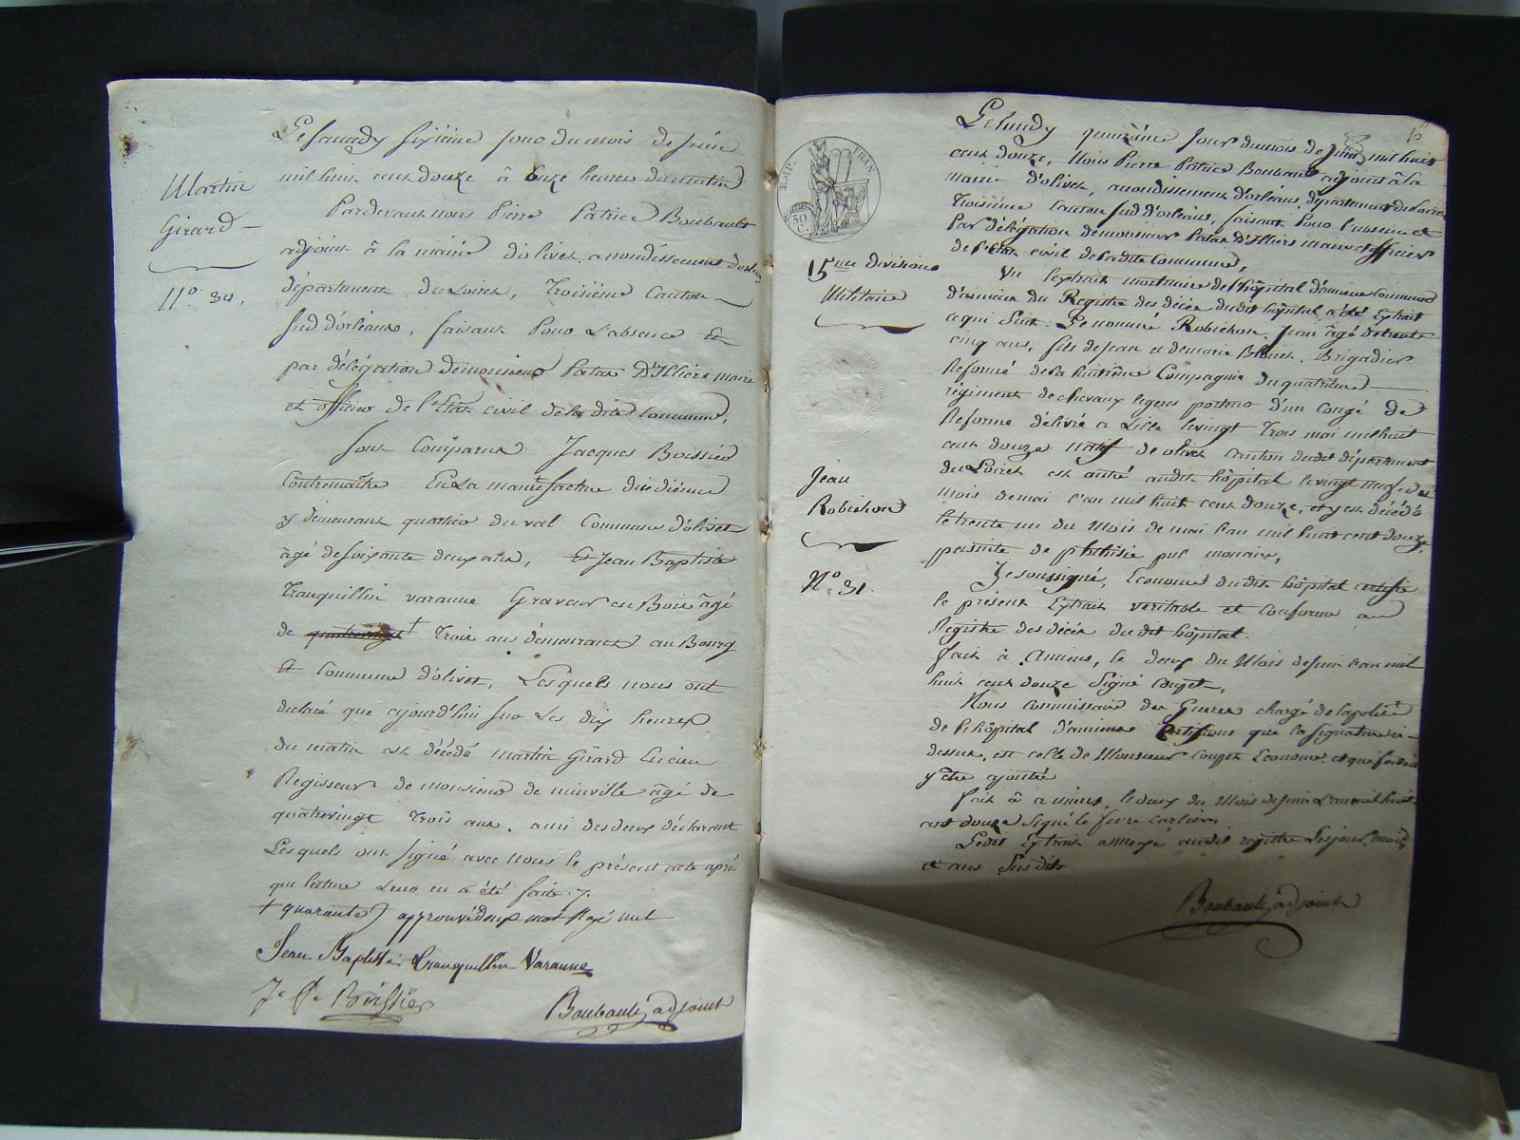 Martin
Girard
N.o 30.
Le samedy sixiéme jour du mois de Juin
mil huit cent douze à onze heures du matin
Pardevant nous Pierre Patrice Boubault
adjoint à la mairie d'olivet, arrondissement d'orléans
département du Loiret, Troisiéme Canton
Sud d'orléans, faisant Pour L'absence Et
par délégation de monsieur Patas D'Illiers maire
et officier de l'état civil de la dite Commune,
sont Comparus Jacques Boissier
Contremaitre En La manufacture
y demeurant quartier du val Commune d'olivet
âgé de soixante deux ans, Et Jean Baptiste
Tranquillin varanne Graveur en Bois âgé
de quatrevingt + Trois ans demeurant au Bourg
Et Commune d'olivet, Lesquels nous ont
declaré que ajourd'hui sur Les dix heures
du matin est décédé martin Girard
Regisseur de monsieur de âgé de
quatrevingt Trois ans, ami des deux déclarant
Lesquels ont signé avec nous le présent acte aprés
que lecture Leur en a été faite ./.
+ quarante) approuvé deux mot Rayé nul
Jean Baptiste Tranquillin Varanne
Boissier
Boubault adjoint
EMP. FRAN.
50 C.
15me division
Militaire
Jean
Robichon
N.o 31.
Le lundy quinziéme Jour du mois de Juin mil huit
cent douze, Nous Pierre Patrice Boubault adjoint à la
mairie d'olivet, arrondissement d'orléans, département du Loiret
Troisiéme canton sud d'orléans, faisant Pour l'absence et
Par délégation de monsieur Patas D'Illiers maire et officier
de l'état civil de la dite Commune,
Vu l'extrait mortuaire de l'hôpital d'amiens Commune
d'amiens du Registre des décés du dit hôpital a été Extrait
ce qui suit. Le nommé Robichon, Jean âgé de trente
cinq ans, fils de Jean et de marie Brigadier
Reformé de la huitiéme Compagnie du quatriéme
régiment de chevaux legers porteur d'un congé de
Reforme délivré a Lille le vingt Trois mai mil huit
cent douze natif de olivet canton dudit département
du Loiret est entré audit hôpital le vingt neuf du
mois de mai l'an mil huit cent douze, et y est décédé
le trente un du mois de mai l'an mil huit cent douze,
par suite de phthisie pulmonaire,
Je soussigné, Econome du dit hôpital certifie
le présent Extrait veritable et conforme au
Registre des décés du dit hôpital.
fait à Amiens, le deux du Mois de Juin l'an mil
huit cent douze signé
Nous commissaire des Guerres chargé de la police
de l'hôpital d'amiens certifions que la signature ci-
dessus, est celle de Monsieur Econome et que foi doit
y être ajoutée
fait à amiens, le deux du Mois de Juin L'an mil huit
cent douze signé le
Ledit Extrait annexé audit registre Les jour, mois
et ans Susdits
Boubault adjoint